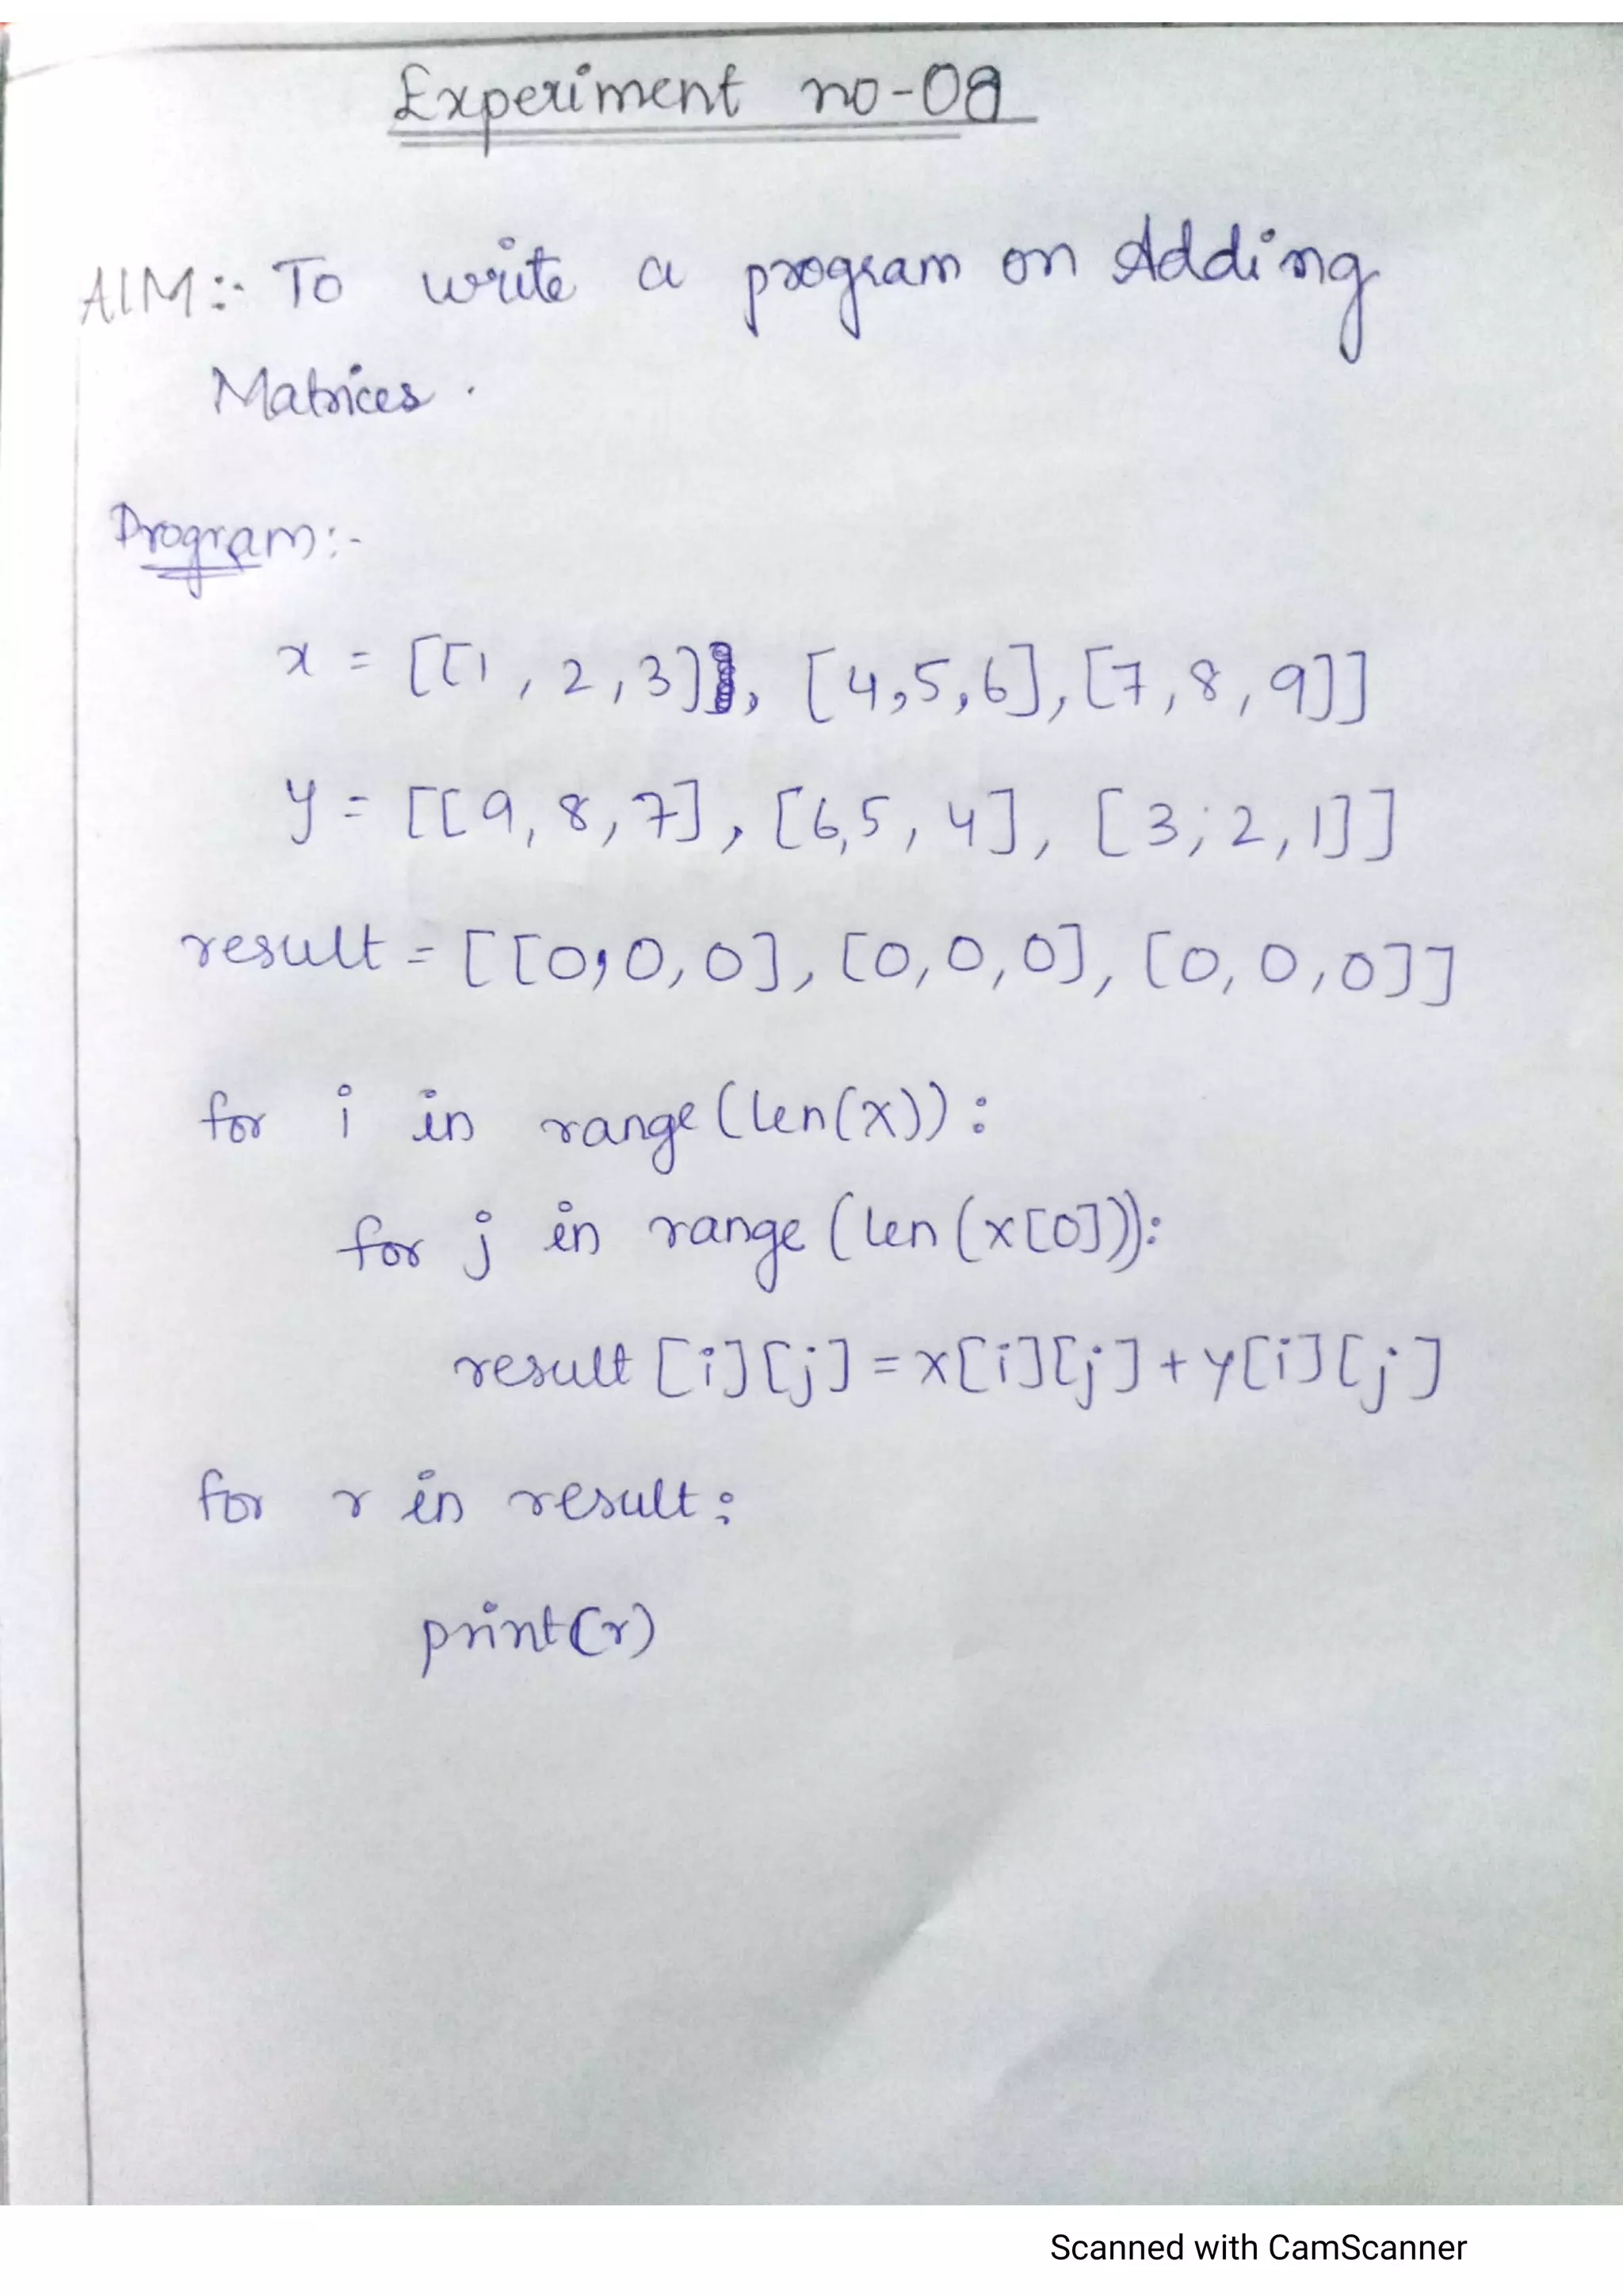 Experiment no-08
AIM:- To write a program on Adding
Matrices.
Program:-
x = [[1, 2, 3], [4,5,6], [7, 8, 9]]
y = [[9, 8, 7], [6,5, 4], [3, 2, 1]]
result = [[0,0,0], [0,0,0], [0,0,0]]
for i in range(len(x)):
for j in range (len (x[0])):
result [i][j] = x[i][j] + y[i][j]
for r in result:
print(r)
Scanned with CamScanner